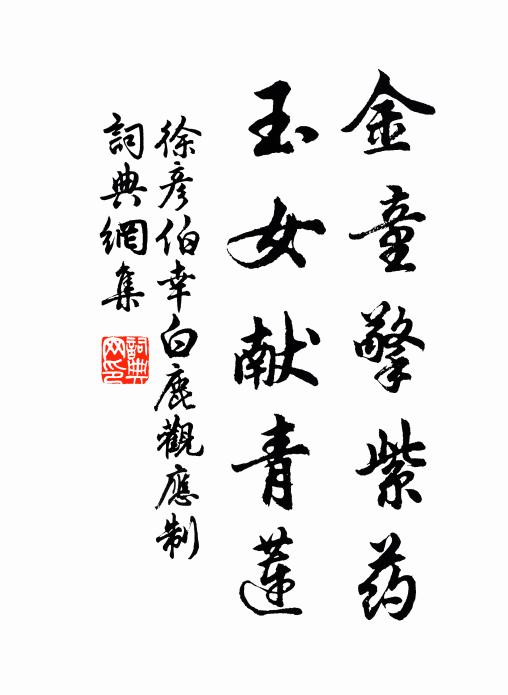 金童擎紫药
玉女献青莲
徐彥伯幸白鹿觀應制
詞典網集
詞典网印